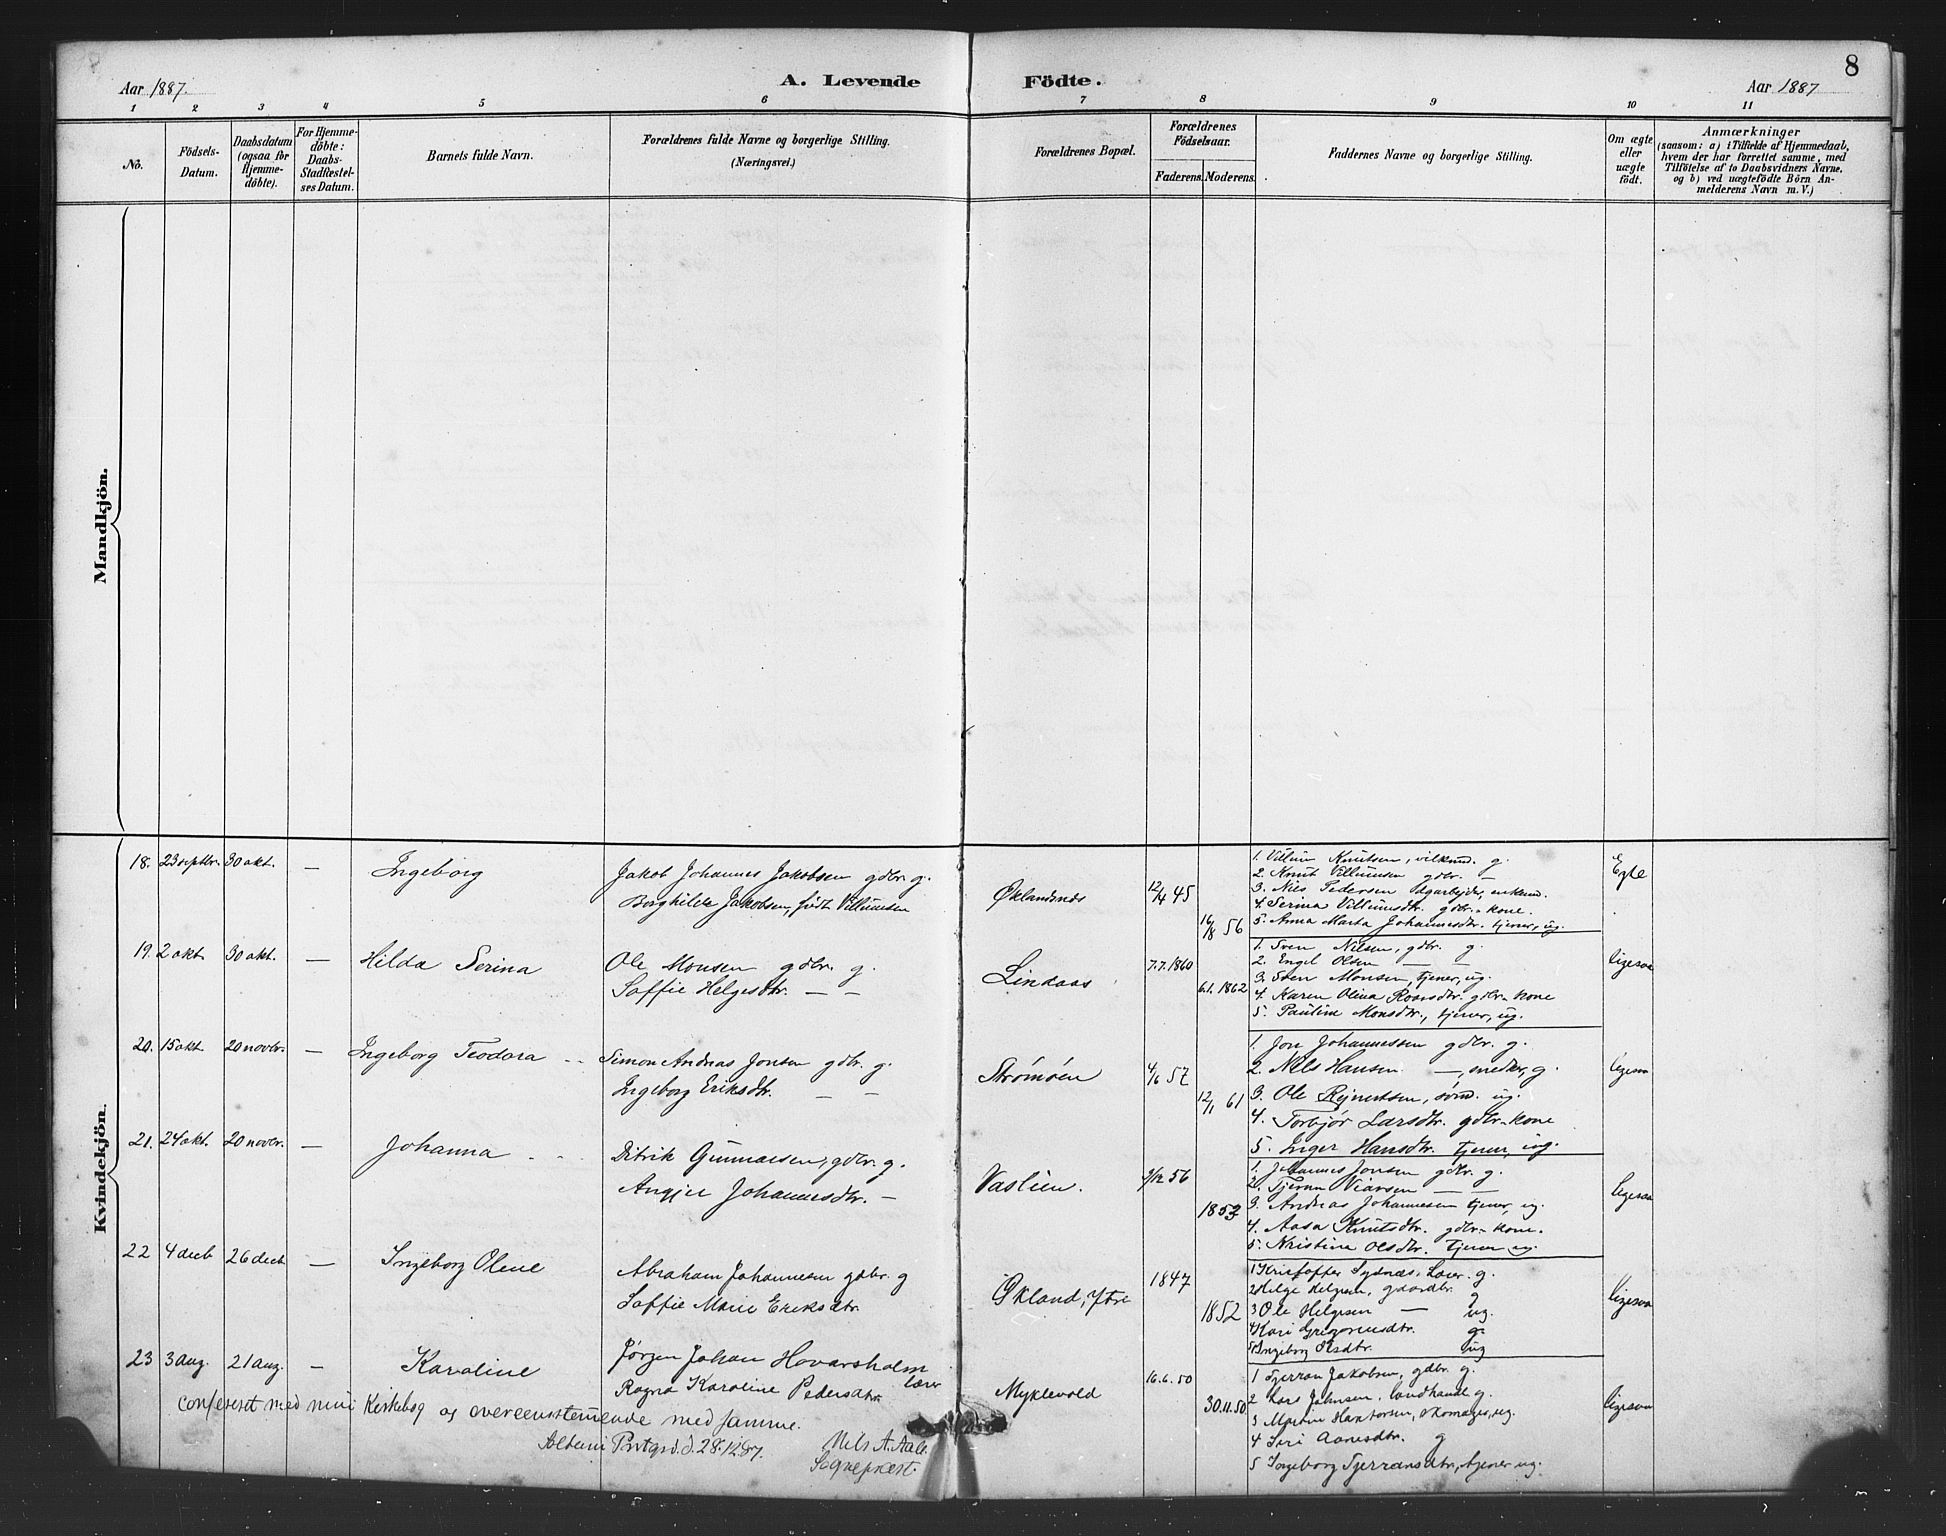 8
Aar 1887.
A. Levende Födte.
Aar 1887
1 2 3 4 5 6 7 8 9 10 11
No.
Födsels-Datum.
Daabsdatum (ogsaa for Hjemme-döbte).
For Hjemme-döbte: Daabs-Stadfæstel-ses Datum.
Barnets fulde Navn.
Forældrenes fulde Navne og borgerlige Stilling.
(Næringsvei.)
Forældrenes Bopæl.
Forældrenes Födselsaar.
Faderens. Moderens.
Faddernes Navne og borgerlige Stilling.
Om ægte eller uægte födt.
Anmærkninger
(saasom: a) i Tilfælde af Hjemmedaab,
hvem der har forrettet samme, med
Tilföielse af to Daabsvidners Navne,
og b) ved uægtefödte Börn An-
melderens Navn m. V.)
Mandkjön.
Kvindekjön.
18. 23 septbr. 30 okt. — Ingeborg
Jakob Johannes Jakobsen gdbr. g.
Borghilde Jakobsen, født Villumsen
Øklandsnes
12/4 45
16/8 56
1. Villum Knutsen, vilkmd. g.
2. Knut Villumsen gdbr. —
3. Nils Pedersen dgarbejder, enkemd.
4. Serina Villumsdtr. gdbr.-kone.
5. Anna Marta Johannesdtr. tjener, ug.
Egte
19. 2 okt. 30 okt. — Hilda Serina
Ole Monsen gdbr. g.
Soffie Helgesdtr. — —
Lindaas
7.7.1860
6.1.1862
1. Sven Nilsen, gdbr. g.
2. Engel Olsen — —
3. Sven Monsen, tjener, ug.
4. Karen Olina Roarsdtr. gdbr.-kone
5. Pauline Monsdtr., tjener, ug.
ligesaa
20. 15 okt 20 novbr. — Ingeborg Teodora
Simon Andreas Jonsen gdbr. g.
Ingeborg Eriksdtr. — —
Strømøen
4/6 57
12/1 61
1. Jon Johannessen gdbr. g.
2. Nils Hansen —, snedker, g.
3. Ole Rejnertsen, sømd. ug.
4. Torbjør Larsdtr. gdbr.-kone
5. Inger Hansdtr. tjener, ug.
ligesaa
21. 24 okt. 20 novbr. — Johanna
Ditrik Gunnarsen, gdbr. g.
Johannesdtr. —
Vaslien.
/12 56
1853
1. Johannes Jonsen gdbr. g.
2. Tjeran — —
3. Andreas Johannesen tjener, ug.
4. Aasa Knutsdtr. gdbr.-kone.
5. Kristina Olsdtr. tjener ug.
ligesaa
22 4 decb 26 decb. — Ingeborg Olene
Abraham Johannesen gdbr. g
Soffie Marie Eriksdtr.
Økland, Ytre
1847
1852
1 Kristoffer Sydnæs, Lærer. g.
2 Helge Helgesen, gaardbr. g
3 Ole Helgesen — ug.
4 Kari Gregoriusdtr. g.
5 Ingeborg Olsdtr. ug
ligesaa
23 3 aug. 21 aug. — Karoline
Jørgen Johan Hovarsholm
lærer
Ragna Karoline Pedersdtr.
Myklevold
16.6.50
30.11.50
1 Tjerran Jakobsen, gdbr. g.
2 Lars Johnsen, landhandl. g.
3 Martin Hantorsen, skomager, ug.
4 Siri Aanesdtr. g
5 Ingeborg Tjerransdtr, tjener ug.
ligesaa
confereret med min Kirkebog og overeensstemmende med samme.
Prstgrd. d. 28.12.87.
Nils A. Aall.
Sogneprest.